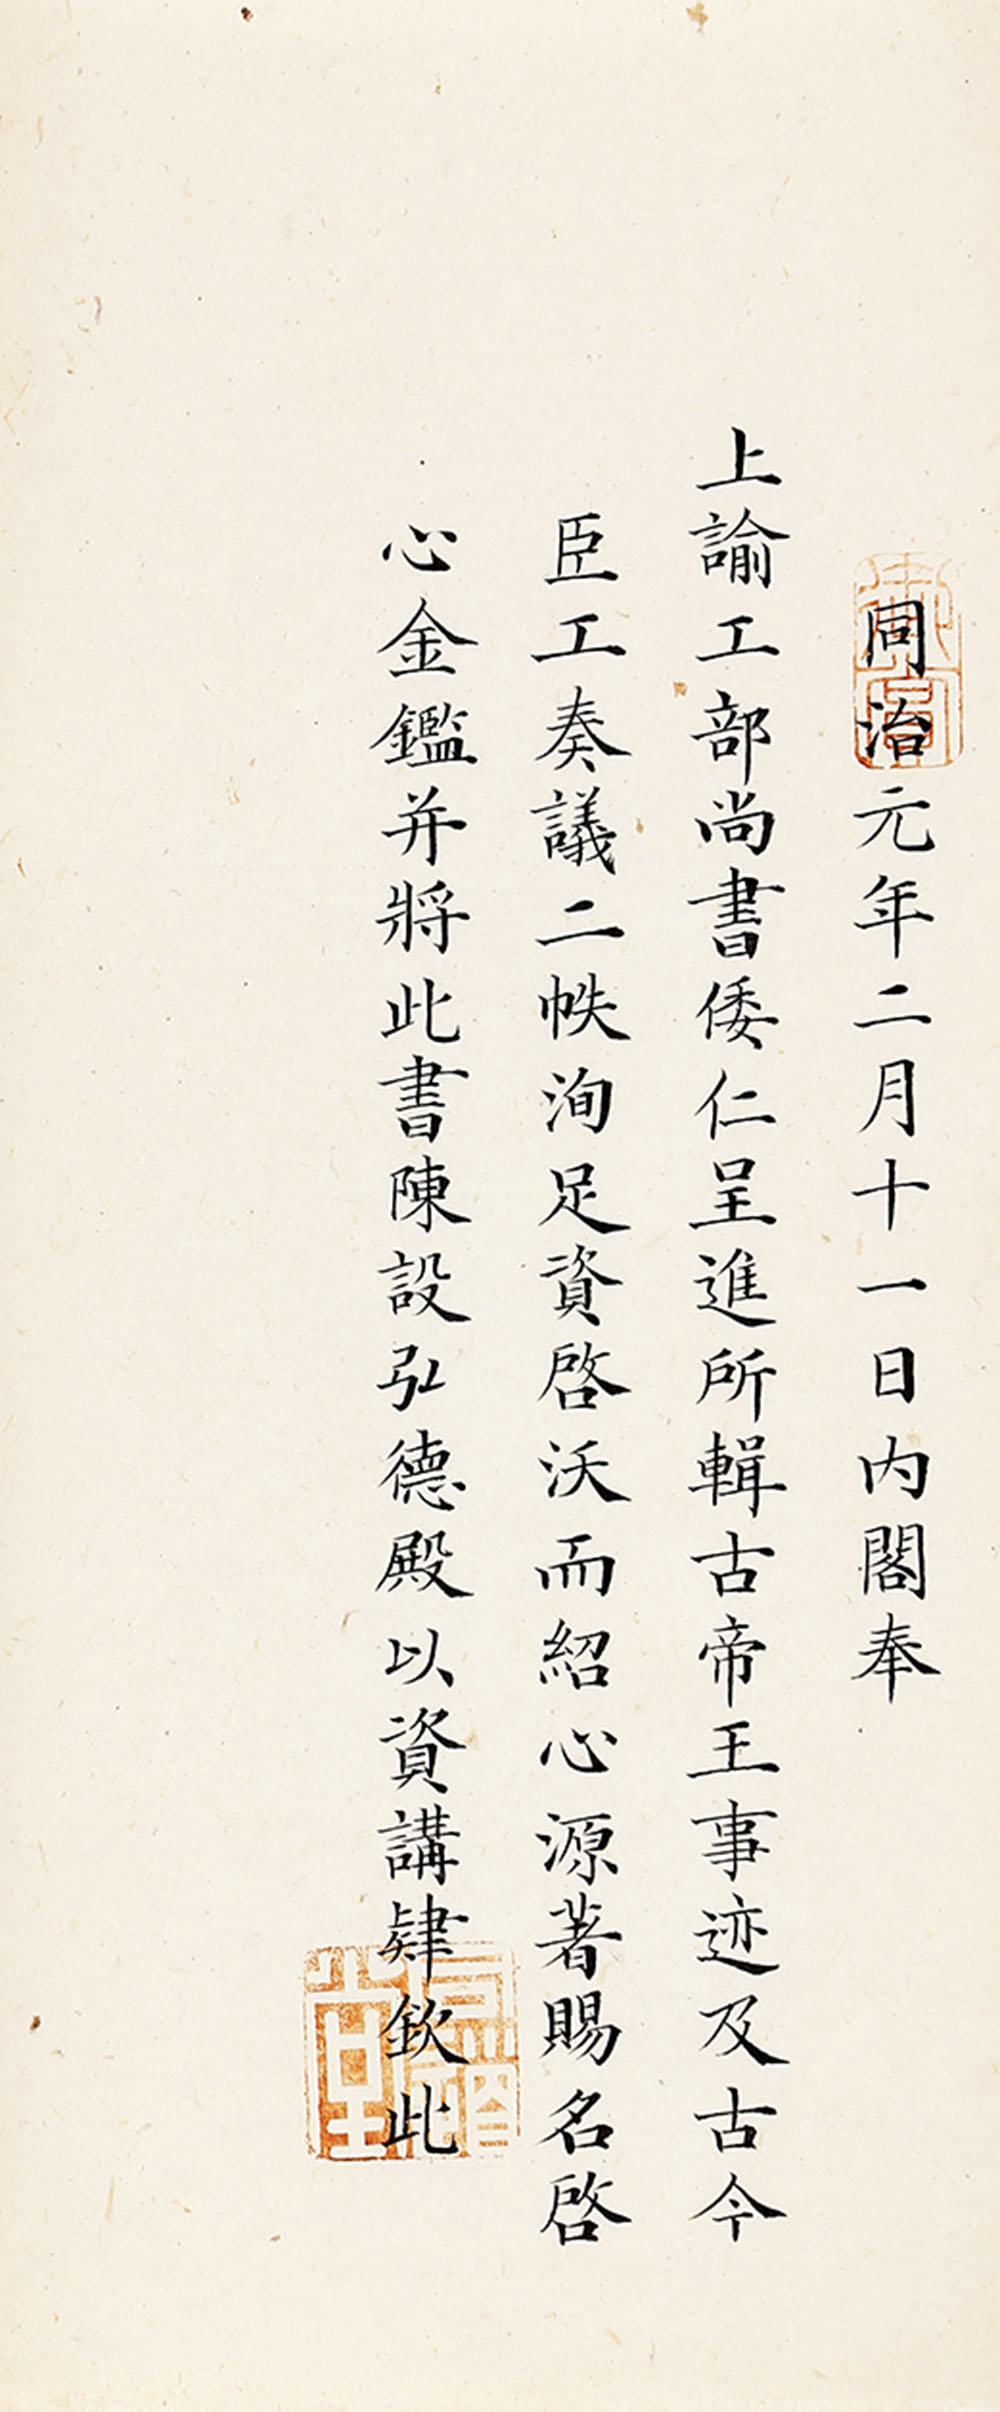 同治元年二月十一日内閣奉
上諭工部尚書倭仁呈進所輯古帝王事迹及古今
臣工奏議二帙洵足資啓沃而紹心源著賜名啓
心金鑑并將此書陳設弘德殿以資講肄欽此